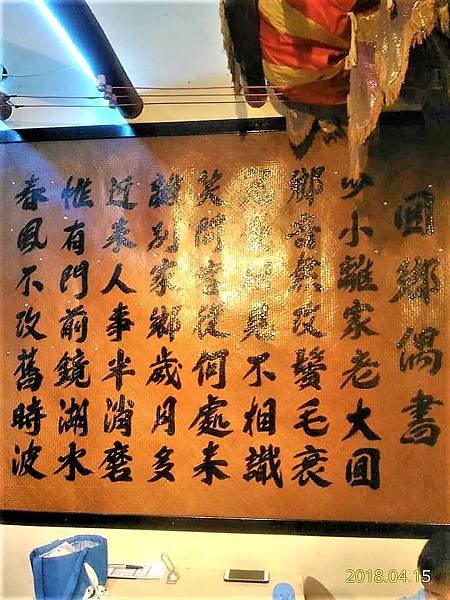 回鄉偶書
少小離家老大回
鄉音無改鬢毛衰
兒童相見不相識
笑問客從何處來
離別家鄉歲月多
近來人事半消磨
惟有門前鏡湖水
春風不改舊時波
2018.04.15